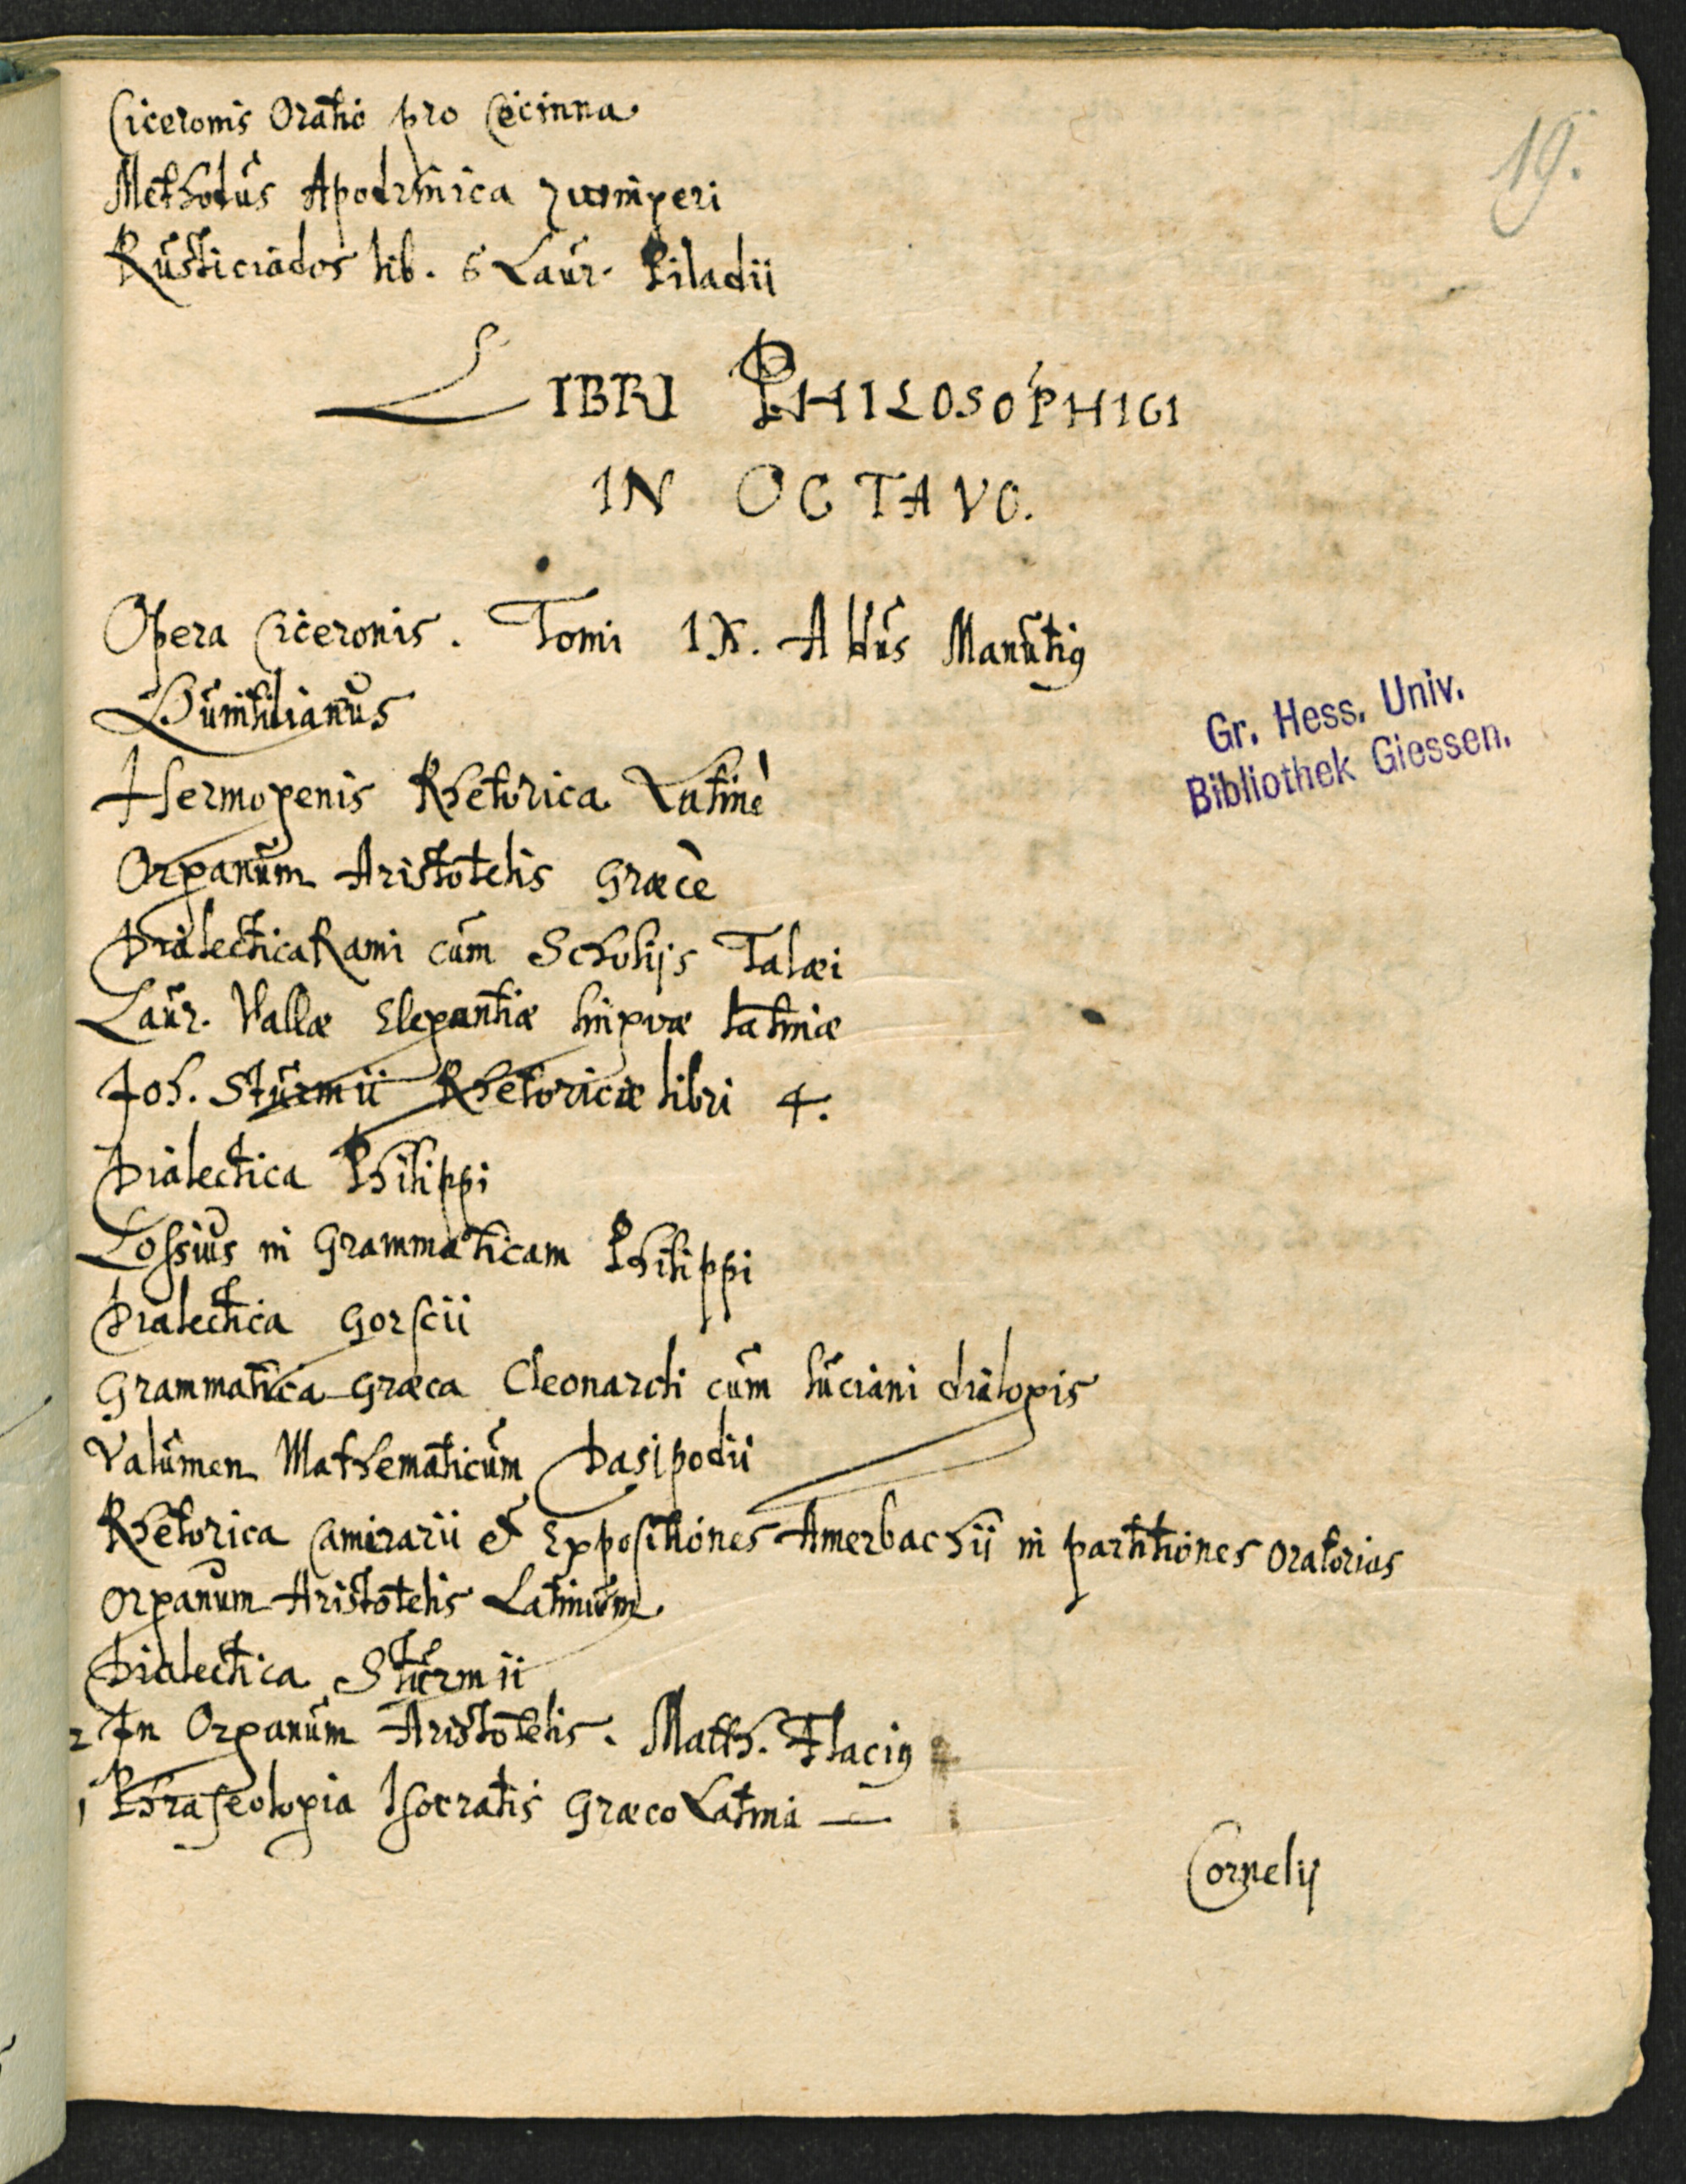 19.
Ciceronis Oratio pro Cecinna
Methodus Apodemica Zuingeri
Rusticiados lib. 6 Laur. Piladii
LIBRI PHILOSOPHICI
IN OCTAVO.
Opera Ciceronis. Tomi IX. Aldus Manutius
Quintilianus
Hermogenis Rhetorica Latinè
Organum Aristotelis Græcè
Dialectica Rami cum Scholijs Talæi
Laur. Vallæ Elegantiæ linguæ latinæ
Joh. Sturmii Rhetoricæ libri 4.
Dialectica Philippi
Lossius in Grammaticam Philippi
Dialectica Gorscii
Grammatica Græca Cleonardi cum luciani dialogis
Valumen Mathematicum Dasipodii
Rhetorica Camerarii et Expositiones Amerbachii in partitiones oratorias
Organum Aristotelis Latinum
Dialectica Sturmii
2 In Organum Aristotelis. Matth. Flacius
1 Phraseologia Isocratis Græco Latina —
Cornelij
Gr. Hess. Univ.
Bibliothek Giessen.